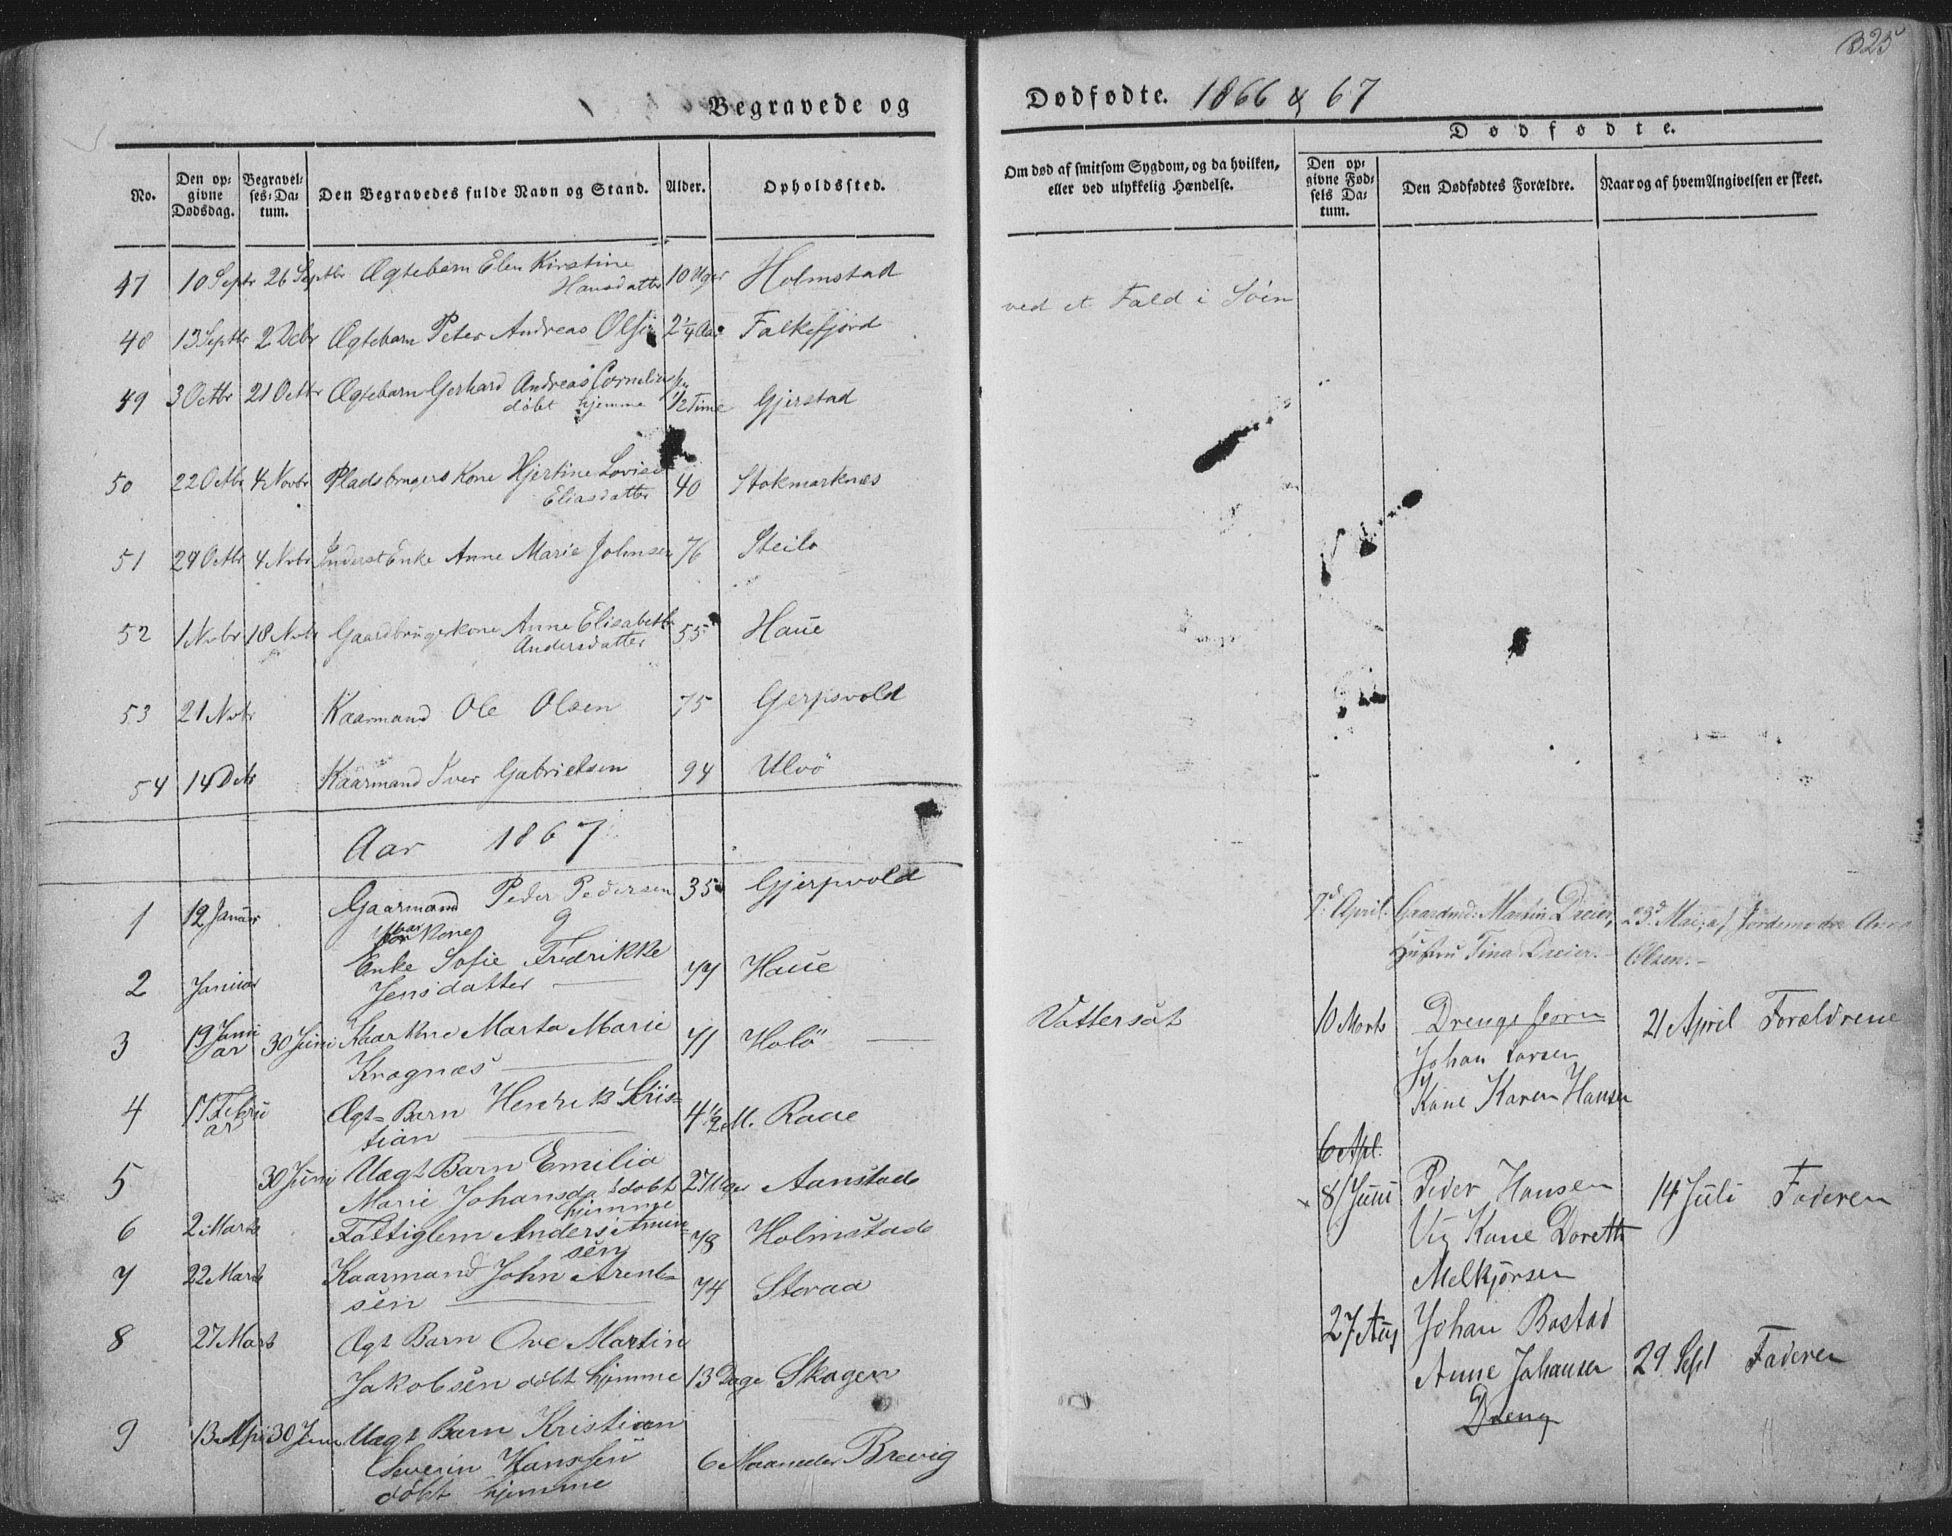 325
Begravede og
Dødfødte. 1866 & 67
No.
Den opgivne Dødsdag.
Begravelses-Datum.
Den Begravedes fulde Navn og Stand.
Alder.
Opholdssted.
Om død af smitsom Sygdom, og da hvilken,
eller ved ulykkelig Hændelse.
Dødfødte.
Den opgivne Fødsels Datum.
Den Dødfødtes Forældre.
Naar og af hvem Angivelsen er skeet.
47 10 Septr 26 Septbr Ægtebarn Elen Kirstine
Hansdatter 10 Uger Holmstad
ved et Fald i Søen
48 13 Septbr 2 Debr Ægtebarn Peter Andreas Olsen 2 1/4 Aar Falkefjord
49 3 Octbr 21 Octbr Ægtebarn Gerhard Andreas Cornelius
døbt hjemme 1/2 Time Gjerstad
50 22 Octbr 4 Novbr Pladsbrugers Kone Hjertine Lovise
Eliasdatter 40 Stokmarknæs
51 29 Octbr 4 Novbr Inderst Enke Anne Marie Johnsen 76 Steilo
52 1 Novbr 18 Novbr Gaardbrugerkone Anne Elisabeth
Andersdatter 55 Haue
53 21 Novbr Kaarmand Ole Olsen 75 Gjerpsvold
54 14 Debr Kaarmand Iver Gabrielsen 94 Ulvö
Aar 1867
1 12 Januar Gaarmand Peder Pedersen 35 Gjerpvold
7d April. Gaardmd: Martin Dreier, 23d Mai; af Jordemoder Anna
Hustru Tina Dreier. - Olsen. -
2 Januar Enke Sofie Fredrikke
Jensdatter 44 Haue
3 19 Januar 30 Juni Kaarkone Marta Marie
Kragnæs 41 Holö
Vattersåt
10 Marts Drengebørn 21 April Forældrene
Johan Larsen
Kone Karen Hansen
4 17 Februar Ægt-Barn Henrik Kristian
4 1/2 M. Raae
6 Apl.
5 30 Juni Uægt Barn Emilia
Marie Johansda døbt
hjemme 27 Uger Aanstad
8 Juni Peder Hansen 14 Juli Faderen
Kone Doreth
Melkjørsen
6 2 Marts Fattiglem Anders
sen 78 Holmstad
7 22 Marts Kaarmand John Arentsen
74 Storaa
27 Aug Johan Bostad
Anne Johansen 29 Sept Faderen
Dreng
8 27 Marts Ægt Barn Ove Martin
Jakobsen døbt hjemme 13 Dage Skagen
9 13 Apr 30 Juni Uægt Barn Kristian
Severin Hanssen
døbt hjemme 6 Maaneder Brevig